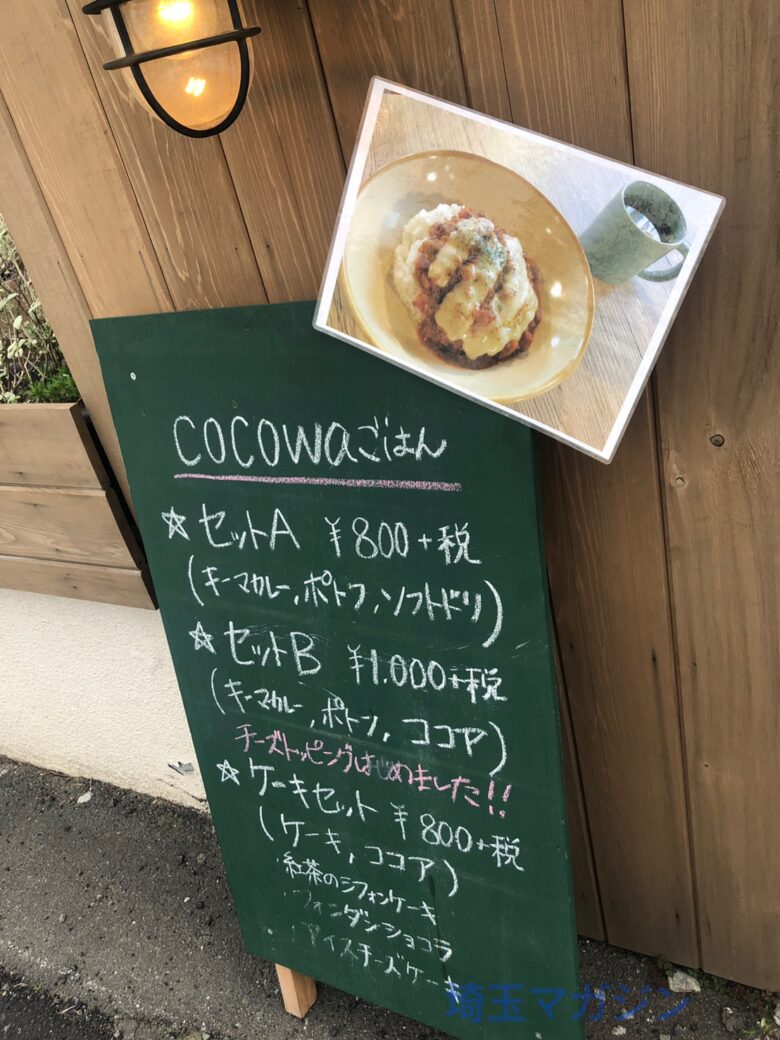 cocowaごはん
☆セットA ¥800+税
(キーマカレー,ポトフ,ソフトドリ)
☆セットB ¥1.000+税
(キーマカレー,ポトフ,ココア)
チーズトッピングはじめました!!
☆ケーキセット ¥800+税
(ケーキ,ココア)
・紅茶のシフォンケーキ
・フォンダンショコラ
・アイスチーズケーキ
埼玉マガジン